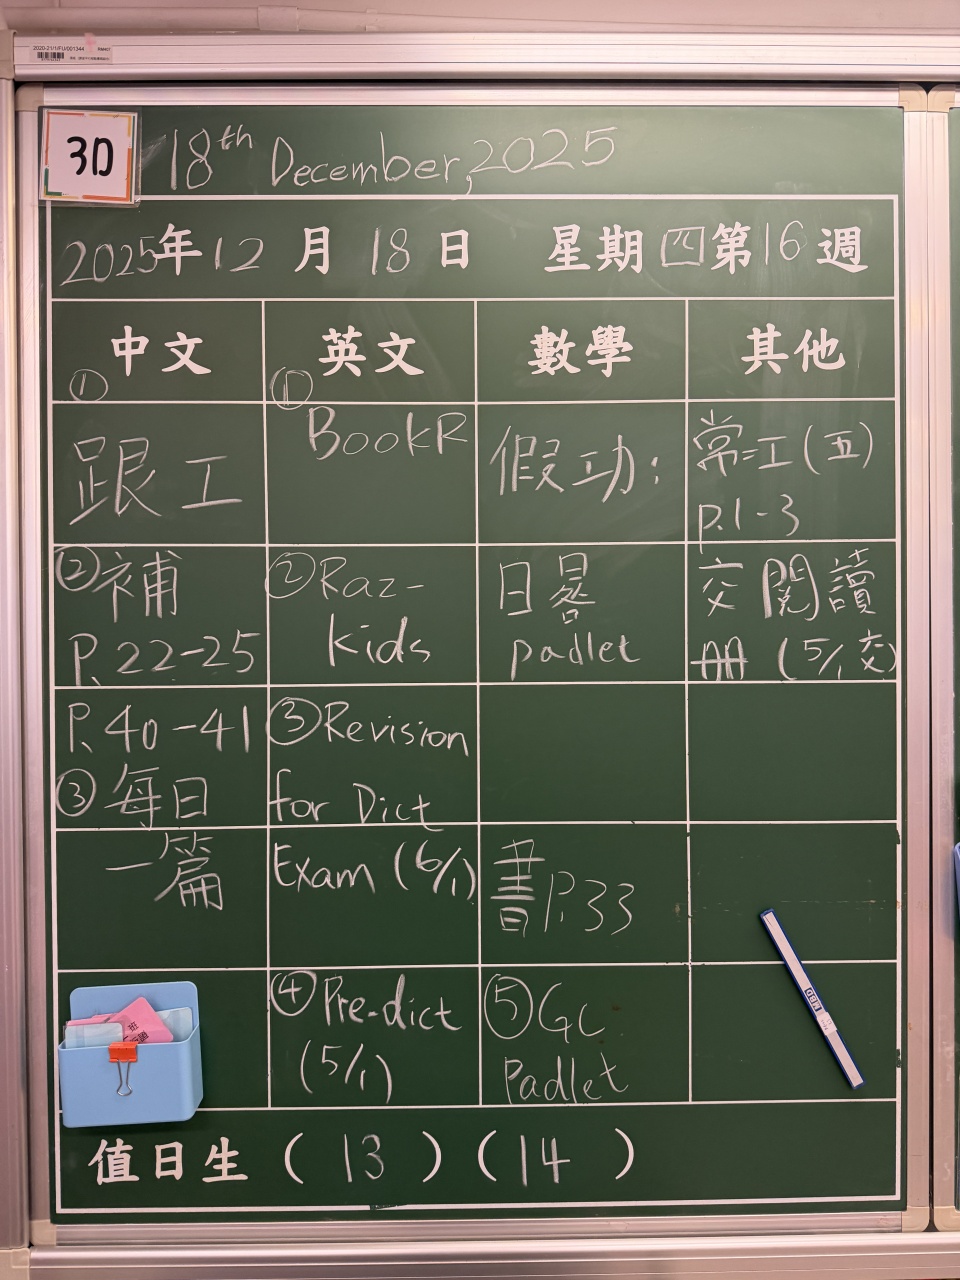 2020-21/1/FU/001344
3D
18th December, 2025
2025年12月18日 星期四第16週
中文
①
跟工
②補
P.22-25
P.40-41
③每日
一篇
英文
①
BookR
②Raz-
kids
③Revision
for Dict
Exam (6/1)
④Pre-dict
(5/1)
數學
假功:
日晷
padlet
書P.33
⑤GC
Padlet
其他
常工(五)
p.1-3
交閱讀
冊(5/1交)
值日生(13)(14)